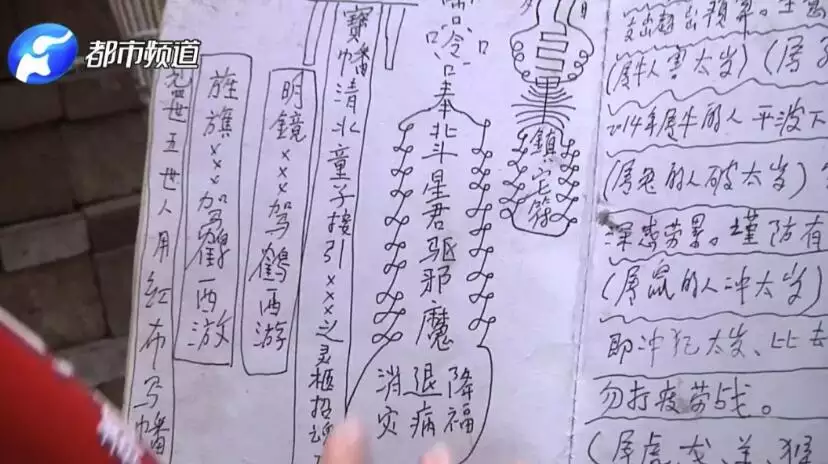 都市频道
五世人用红布写幡
旌旗×××驾鶴西游
明鏡×××驾鶴西游
寶幡清北童子接引×××之灵柩招魂
奉北斗星君驱邪魔
降福
退病
消灾
鎮宅符
(属牛人害太岁)(属
2014年属牛的人平波下
(属兔的人破太岁)
深感劳累。谨防有
(属鼠的人冲太岁)
即冲犯太岁、比去
勿打疲劳战。
(属虎、龙、羊、猴